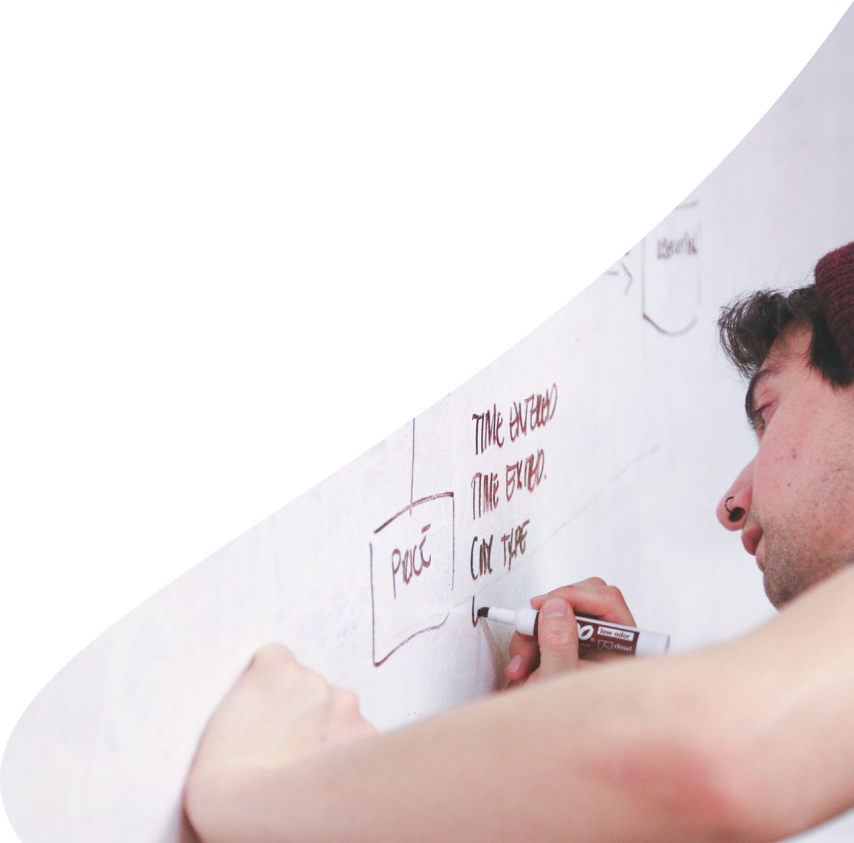 TIME ENTERED
TIME EXITED.
CAR TYPE
PRICE
low odor
chisel